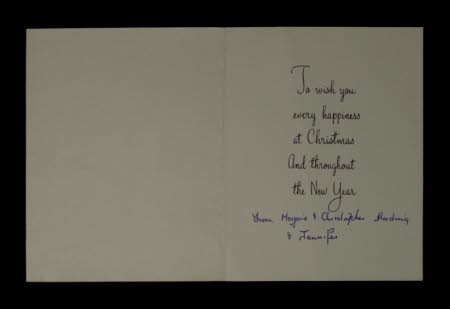 To wish you
every happiness
at Christmas
And throughout
the New Year
from Marjorie & Christopher Harding
& Jennifer